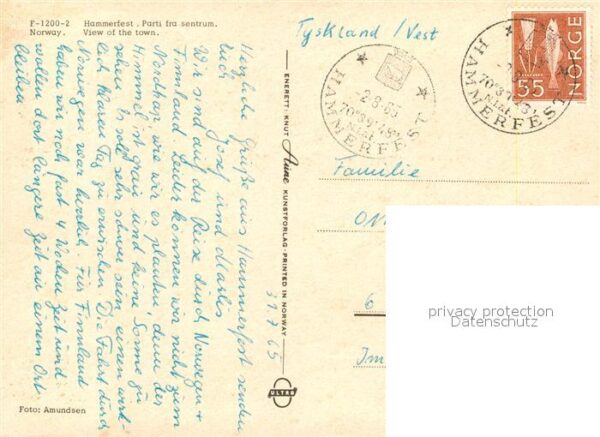 F-1200-2 Hammerfest. Parti fra sentrum.
Norway. View of the town.
Herzliche Grüße aus Hammerfest senden
Euch Josef und Marlis
Wir sind auf der Reise durch Norwegen +
Finnland. Leider können wir nicht zum
Nordkap wie wir es planten, denn der
Himmel ist grau und keine Sonne zu
sehen. Es soll sehr schwer sein einen wirk-
lich klaren Tag zu erwischen. Die Fahrt durch
Norwegen war herrlich. Für Finnland
haben wir noch fast 4 Wochen Zeit und
wollen dort längere Zeit an einem Ort
bleiben.
31.7.65
Foto: Amundsen
ENERETT: KNUT Aune KUNSTFORLAG - PRINTED IN NORWAY
ULTRA
Tyskland / West
HAMMERFEST
-2-8-65
70°39'48"
N.br.
NORGE
55
HAMMERFEST
Familie
6
Im
privacy protection
Datenschutz